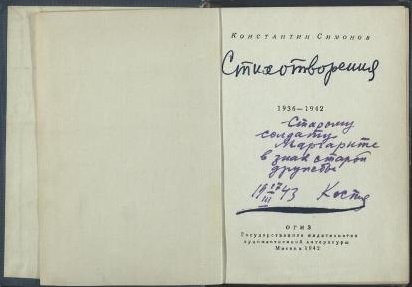 Константин Симонов
Стихотворения
1936—1942
Старому
солдату
Маргарите
в знак старой
дружбы
19 17/III 43 Костя
ОГИЗ
Государственное издательство
художественной литературы
Москва 1942